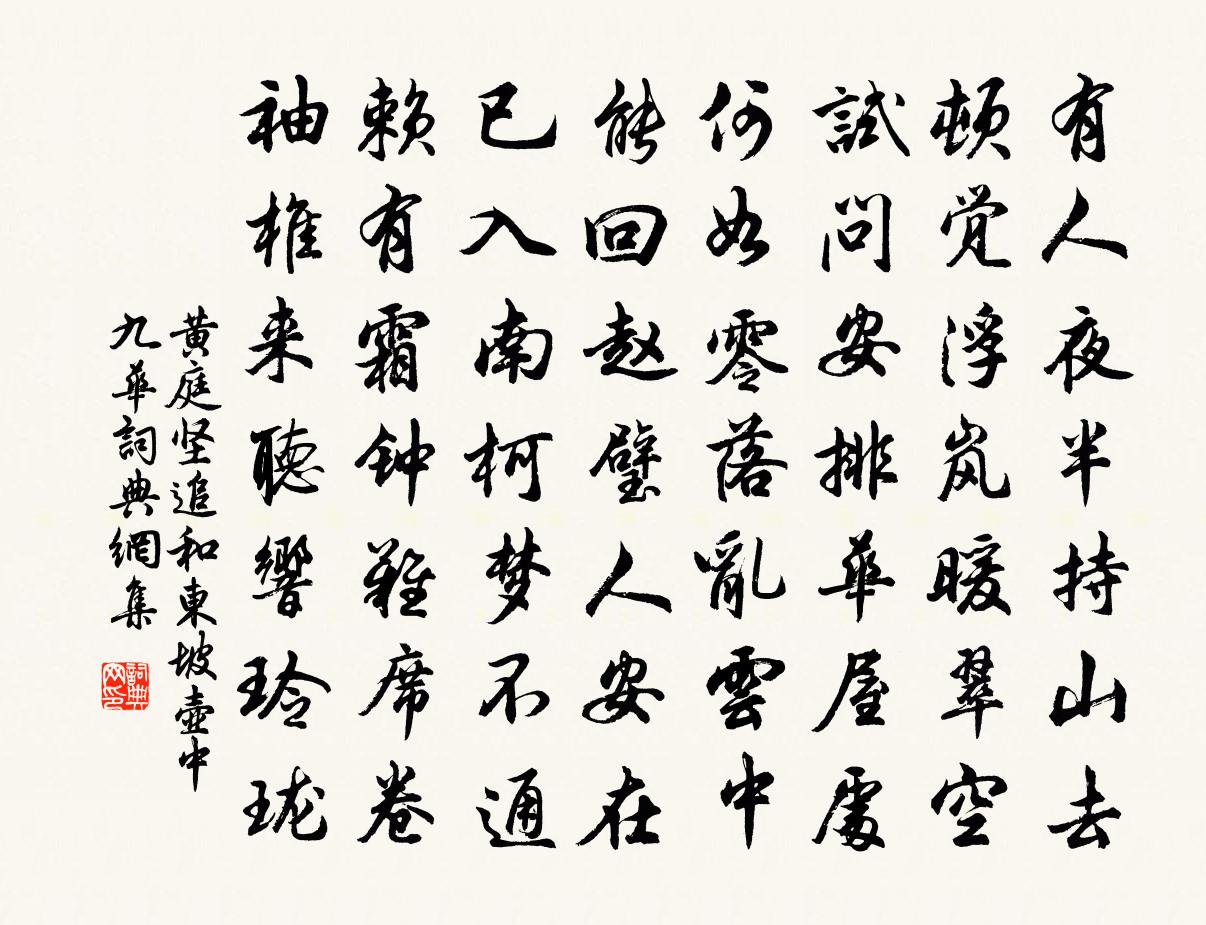 有人夜半持山去
頓觉浮岚暖翠空
試問安排華屋處
何如零落亂雲中
能回赵璧人安在
已入南柯梦不通
赖有霜钟難席卷
袖椎来聽響玲珑
黄庭坚追和東坡壺中
九華詞典網集
詞典网印